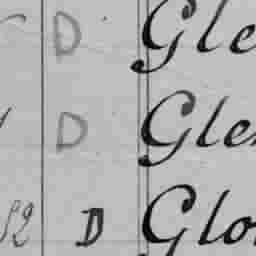 D Gle
D Gle
52 D Glo